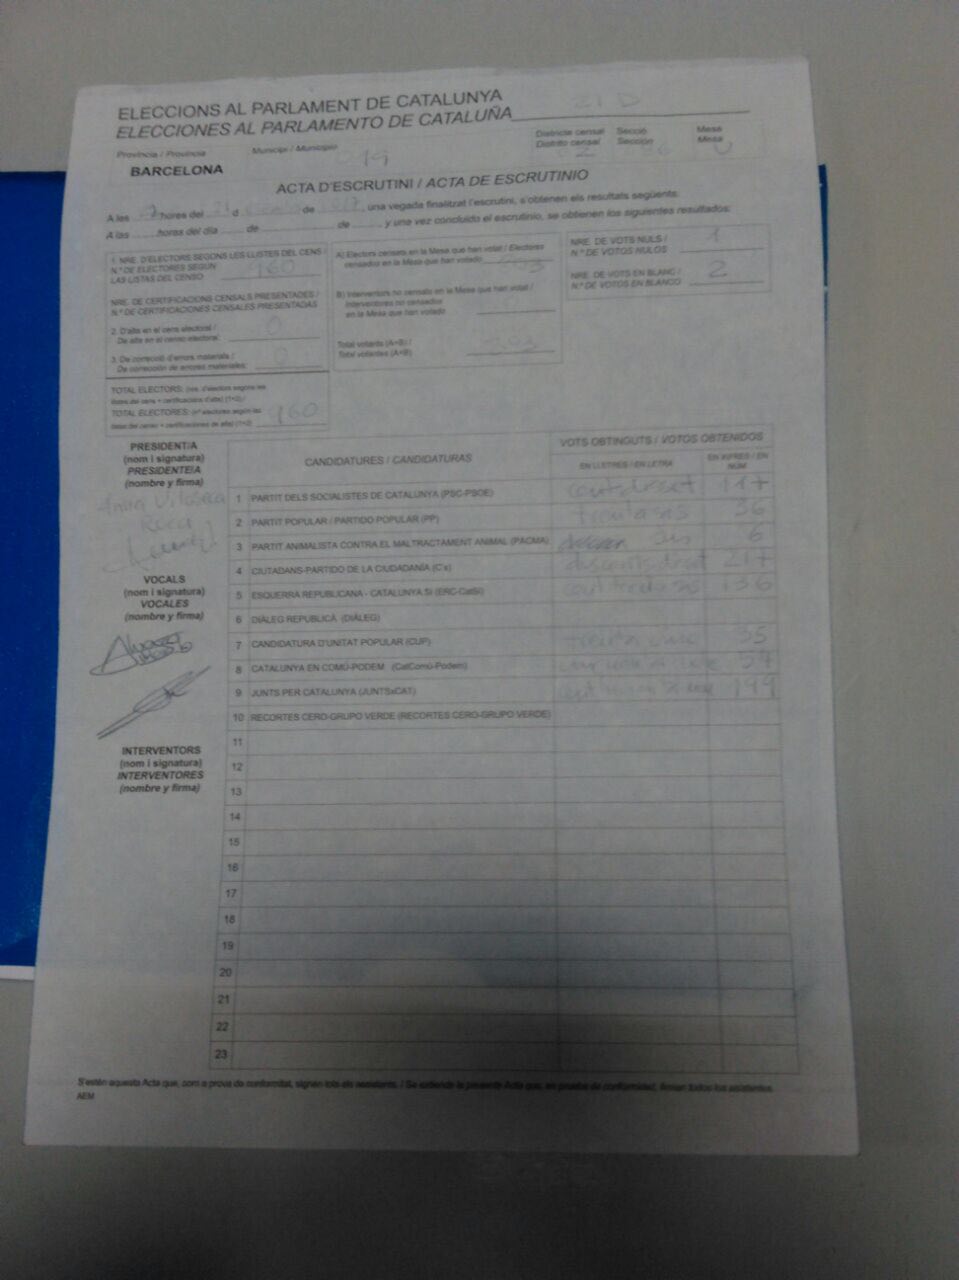 ELECCIONS AL PARLAMENT DE CATALUNYA
ELECCIONES AL PARLAMENTO DE CATALUÑA 21 D
Província / Provincia
Municipi / Municipio
Districte censal
Distrito censal
Secció
Sección
Mesa
Mesa
BARCELONA
019
U
ACTA D'ESCRUTINI / ACTA DE ESCRUTINIO
A les hores del 21 d de 2017, una vegada finalitzat l'escrutini, s'obtenen els resultats següents:
A las hores del día de de y una vez concluido el escrutinio, se obtienen los siguientes resultados:
1. NRE. D'ELECTORS SEGONS LES LLISTES DEL CENS /
N.º DE ELECTORES SEGÚN
LAS LISTAS DEL CENSO 960
NRE. DE CERTIFICACIONS CENSALS PRESENTADES /
N.º DE CERTIFICACIONES CENSALES PRESENTADAS
2. D'alta en el cens electoral /
De alta en el censo electoral: 0
3. De correcció d'errors materials /
De corrección de errores materiales: 0
TOTAL ELECTORS: (nre. d'electors segons les
llistes del cens + certificacions d'alta) (1+2) /
TOTAL ELECTORES: (nº electores según las
listas del censo + certificaciones de alta) (1+2) 960
A) Electors censats en la Mesa que han votat / Electores
censados en la Mesa que han votado
B) Interventors no censats en la Mesa que han votat /
Interventores no censados
en la Mesa que han votado
Total votants (A+B) /
Total votantes (A+B)
NRE. DE VOTS NULS /
N.º DE VOTOS NULOS 1
NRE. DE VOTS EN BLANC /
N.º DE VOTOS EN BLANCO 2
PRESIDENT/A
(nom i signatura)
PRESIDENTE/A
(nombre y firma)
Anna Vilaseca
Roca
VOCALS
(nom i signatura)
VOCALES
(nombre y firma)
INTERVENTORS
(nom i signatura)
INTERVENTORES
(nombre y firma)
CANDIDATURES / CANDIDATURAS
VOTS OBTINGUTS / VOTOS OBTENIDOS
EN LLETRES / EN LETRA
EN XIFRES / EN NÚM
1 PARTIT DELS SOCIALISTES DE CATALUNYA (PSC-PSOE) cent disset 117
2 PARTIT POPULAR / PARTIDO POPULAR (PP) trenta sis 36
3 PARTIT ANIMALISTA CONTRA EL MALTRACTAMENT ANIMAL (PACMA) sis 6
4 CIUTADANS-PARTIDO DE LA CIUDADANÍA (C's) doscents disset 217
5 ESQUERRA REPUBLICANA - CATALUNYA SÍ (ERC-CatSí) 136
6 DIÀLEG REPUBLICÀ (DIÀLEG)
7 CANDIDATURA D'UNITAT POPULAR (CUP) trenta cinc 35
8 CATALUNYA EN COMÚ-PODEM (CatComú-Podem)
9 JUNTS PER CATALUNYA (JUNTSxCAT)
10 RECORTES CERO-GRUPO VERDE (RECORTES CERO-GRUPO VERDE)
11
12
13
14
15
16
17
18
19
20
21
22
23
S'estén aquesta Acta que, com a prova de conformitat, signen tots els assistents. / Se extiende la presente Acta que, en prueba de conformidad, firman todos los asistentes.
AEM